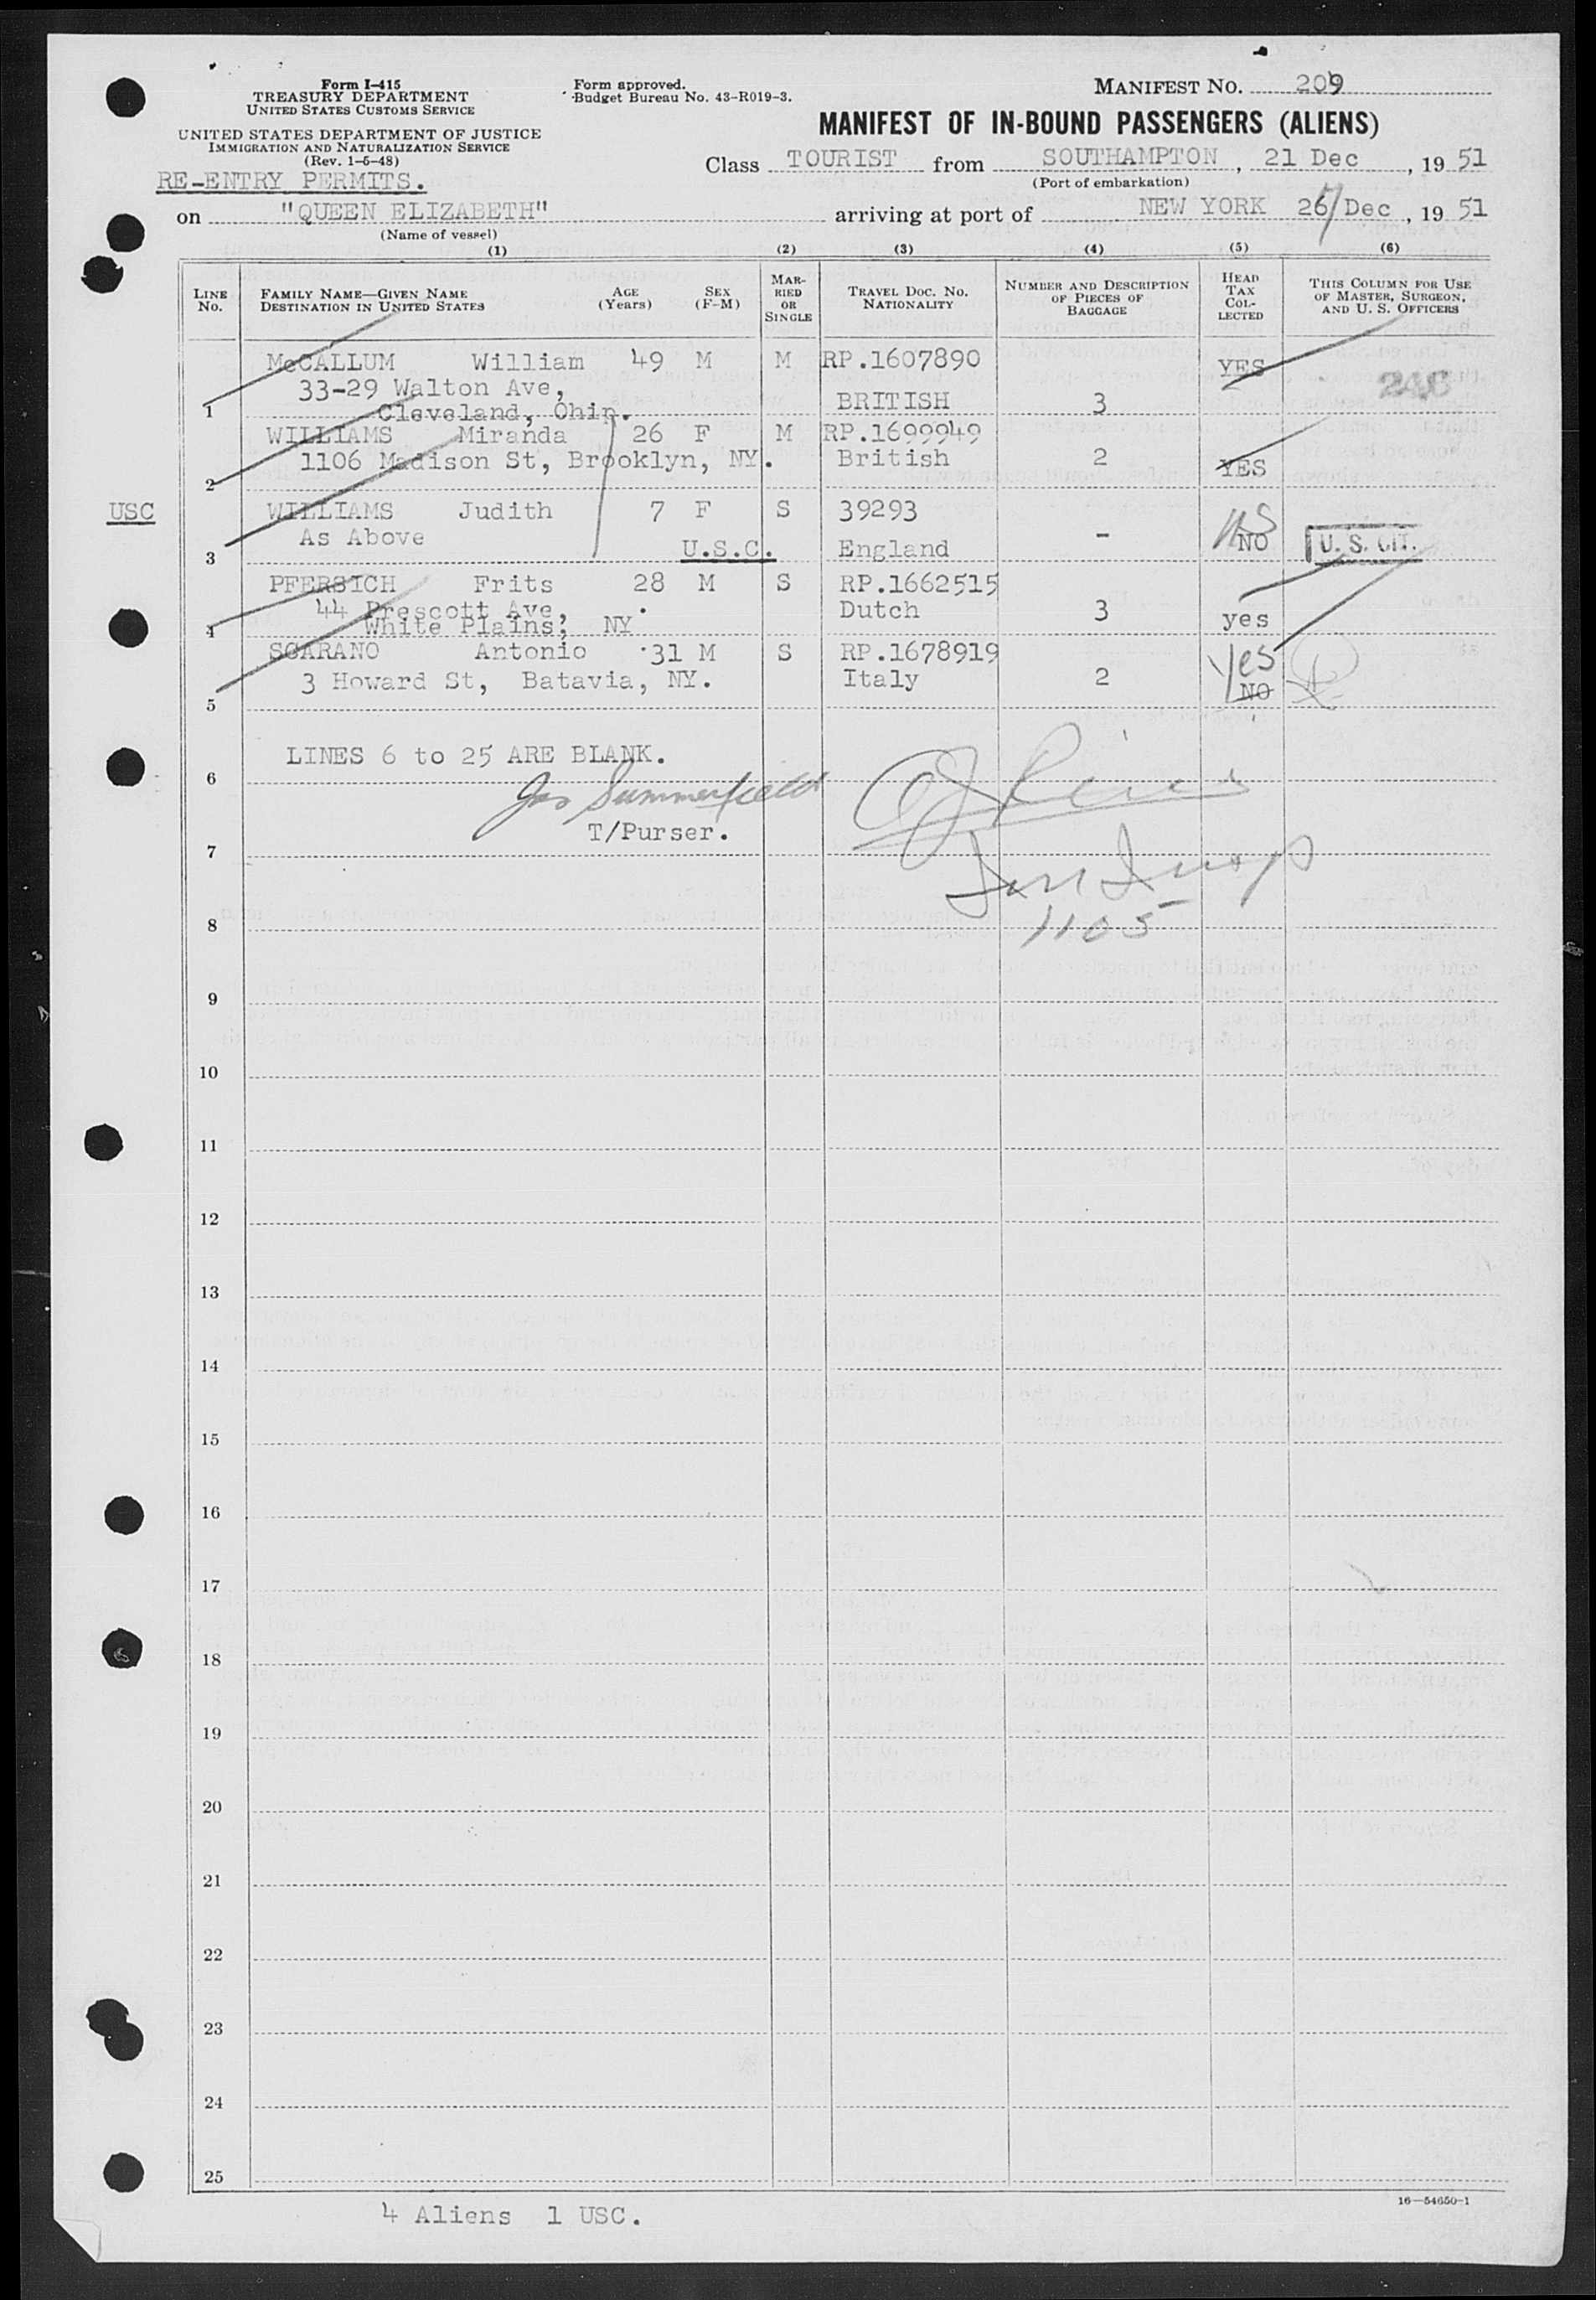 Form I-415
TREASURY DEPARTMENT
UNITED STATES CUSTOMS SERVICE
UNITED STATES DEPARTMENT OF JUSTICE
IMMIGRATION AND NATURALIZATION SERVICE
(Rev. 1-5-48)
RE-ENTRY PERMITS.
Form approved.
Budget Bureau No. 43-R019-3.
MANIFEST NO. 209
MANIFEST OF IN-BOUND PASSENGERS (ALIENS)
Class TOURIST from SOUTHAMPTON, 21 Dec, 19 51
(Port of embarkation)
on "QUEEN ELIZABETH" arriving at port of NEW YORK 26 Dec, 19 51
(Name of vessel)
(1) (2) (3) (4) (5) (6)
LINE NO. FAMILY NAME—GIVEN NAME DESTINATION IN UNITED STATES AGE (Years) SEX (F-M) MARRIED OR SINGLE TRAVEL DOC. NO. NATIONALITY NUMBER AND DESCRIPTION OF PIECES OF BAGGAGE HEAD TAX COLLECTED THIS COLUMN FOR USE OF MASTER, SURGEON, AND U. S. OFFICERS
McCALLUM William 49 M M RP.1607890 YES
33-29 Walton Ave,
1 Cleveland, Ohio. BRITISH 3
WILLIAMS Miranda 26 F M RP.1699949
1106 Madison St, Brooklyn, NY. British 2 YES
2
USC WILLIAMS Judith 7 F S 39293
As Above U.S.C. England - NO U. S. CIT.
3
PFERSICH Frits 28 M S RP.1662515
44 Prescott Ave, Dutch 3 yes
4 White Plains, NY
SCARANO Antonio 31 M S RP.1678919 Yes
3 Howard St, Batavia, NY. Italy 2 NO
5
LINES 6 to 25 ARE BLANK.
6
Jas Summerfield
T/Purser.
7
8 1105
9
10
11
12
13
14
15
16
17
18
19
20
21
22
23
24
25
16—54650-1
4 Aliens 1 USC.